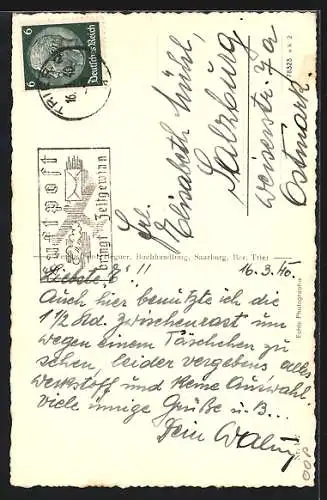 6 6
Deutsches Reich
TRI
16.
Luftpost
bringt Zeitgewinn
Frl.
Elisabeth Mühl,
Salzburg
Weiserstr. 7a
Ostmark.
Buchhandlung, Saarburg, Bez. Trier
16.3.40.
Liebste E° !!
Auch hier benützte ich die
1 1/2 Std. Zwischenrast um
wegen einem Täschchen zu
sehen, leider vergebens alles
Werkstoff und kleine Auswahl.
Viele innige Grüße u. B...
Dein
Echte Photographie